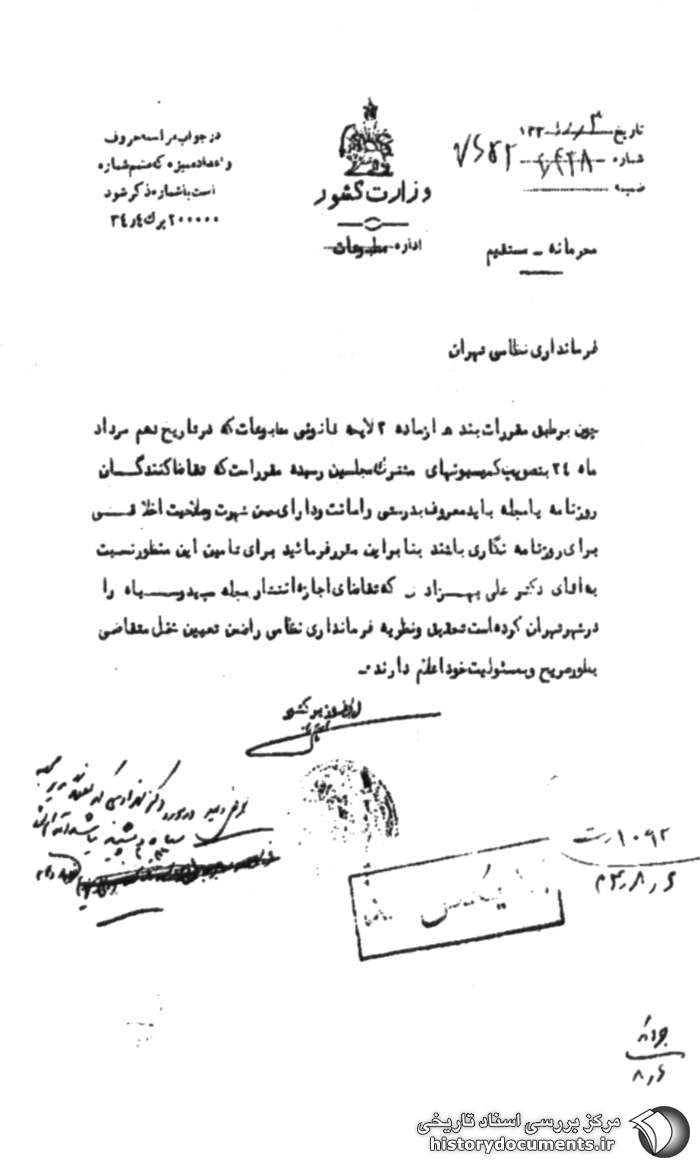 در جواب مراسله حروف
و اعداد ممیزه که ضمیمه شماره
است با شماره ذکر شود
۲۰۰۰۰۰ برگ ۳۴٫۴
وزارت کشور
اداره مطبوعات
تاریخ ۱۳۳
شماره ۷۶۵۲
ضمیمه
محرمانه - مستقیم
فرمانداری نظامی تهران
چون بر طبق مقررات بند هـ از ماده ۲ لایحه قانونی مطبوعات که در تاریخ دهم مرداد
ماه ۳۴ بتصویب کمیسیونهای مشترک مجلسین رسیده مقرر است که تقاضا کنندگان
روزنامه یا مجله باید معروف بدرستی و امانت و دارای حسن شهرت و صلاحیت اخلاقی
برای روزنامه نگاری باشند بنابراین مقرر فرمائید برای تامین این منظور نسبت
به آقای دکتر علی بهزادی که تقاضای اجازه انتشار مجله سپید و سیاه را
در شهر تهران کرده است تحقیق و نظریه فرمانداری نظامی را ضمن تعیین شغل متقاضی
بطور صریح و بمسئولیت خود اعلام دارند -
از طرف وزیر کشور
بایگانی شد
۱۰۹۲
۳۴٫۸٫۶
۸٫۶
مرکز بررسی اسناد تاریخی
historydocuments.ir